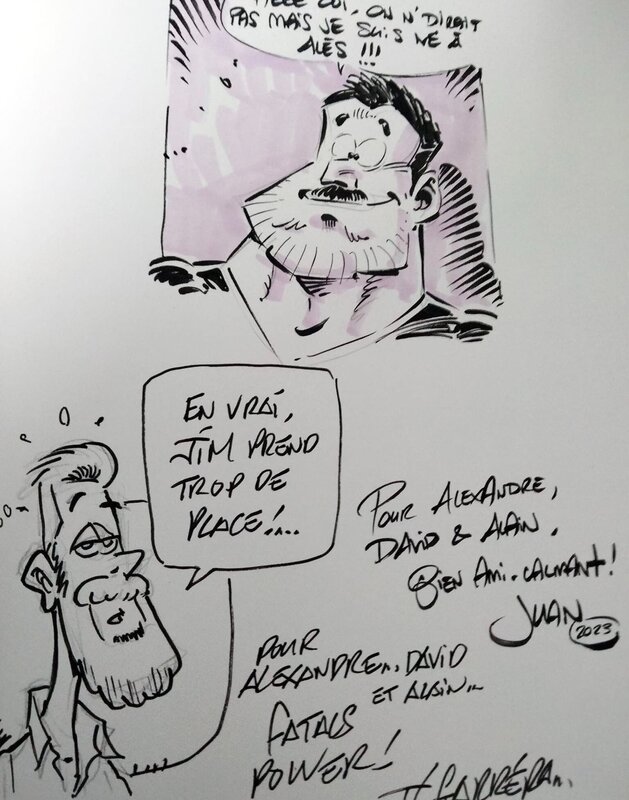 OUI, ON N'DIRAIT
PAS MAIS JE SUIS NÉ À
ALÈS !!!
EN VRAI,
JIM PREND
TROP DE
PLACE!...
POUR ALEXANDRE,
DAVID & ALAIN.
BIEN AMI-CALMANT!
JUAN
2023
POUR
ALEXANDRE... DAVID
ET ALAIN...
FATALS
POWER!